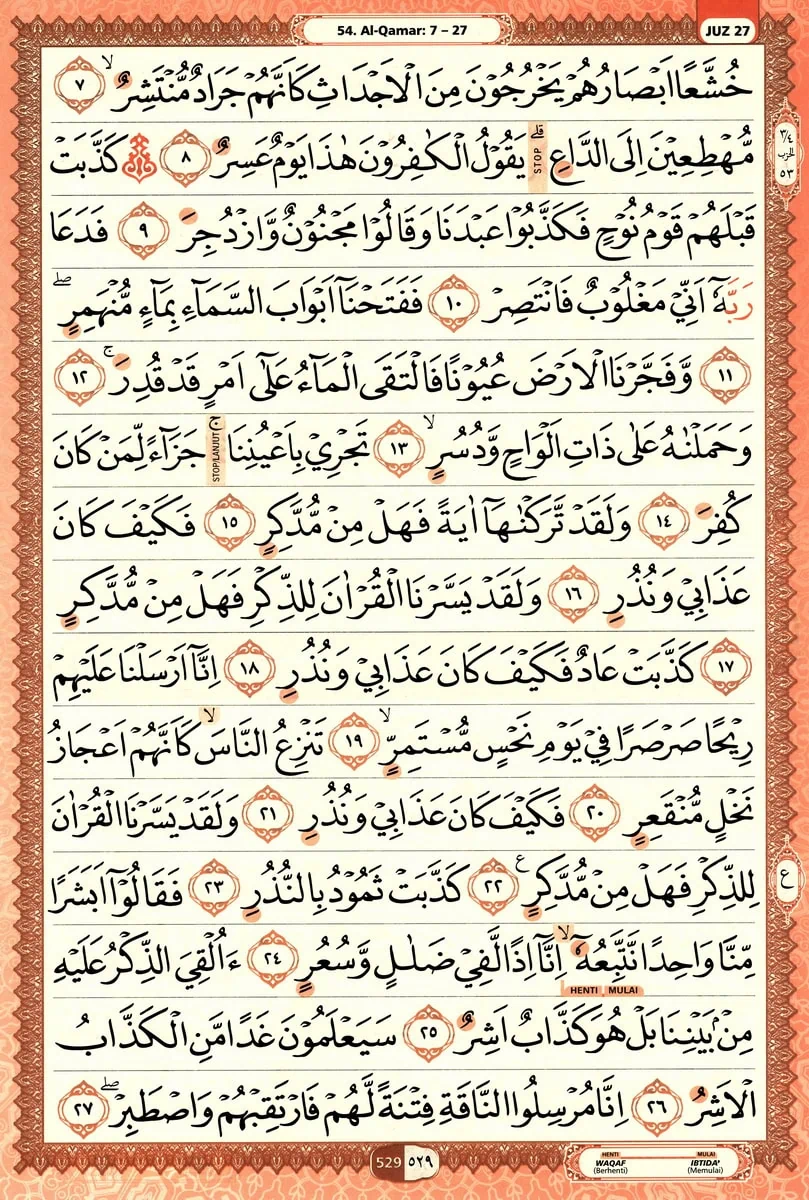 54. Al-Qamar: 7 – 27
JUZ 27
خُشَّعًا اَبْصَارُهُمْ يَخْرُجُوْنَ مِنَ الْاَجْدَاثِ كَاَنَّهُمْ جَرَادٌ مُّنْتَشِرٌۙ ٧
مُّهْطِعِيْنَ اِلَى الدَّاعِۗ STOP يَقُوْلُ الْكٰفِرُوْنَ هٰذَا يَوْمٌ عَسِرٌ ٨ كَذَّبَتْ
قَبْلَهُمْ قَوْمُ نُوْحٍ فَكَذَّبُوْا عَبْدَنَا وَقَالُوْا مَجْنُوْنٌ وَّازْدُجِرَ ٩ فَدَعَا
رَبَّهٗٓ اَنِّيْ مَغْلُوْبٌ فَانْتَصِرْ ١٠ فَفَتَحْنَآ اَبْوَابَ السَّمَآءِ بِمَآءٍ مُّنْهَمِرٍۖ
١١ وَّفَجَّرْنَا الْاَرْضَ عُيُوْنًا فَالْتَقَى الْمَآءُ عَلٰٓى اَمْرٍ قَدْ قُدِرَۚ ١٢
وَحَمَلْنٰهُ عَلٰى ذَاتِ اَلْوَاحٍ وَّدُسُرٍۙ ١٣ تَجْرِيْ بِاَعْيُنِنَاۚ STOP/LANJUT جَزَآءً لِّمَنْ كَانَ
كُفِرَ ١٤ وَلَقَدْ تَّرَكْنٰهَآ اٰيَةً فَهَلْ مِنْ مُّدَّكِرٍ ١٥ فَكَيْفَ كَانَ
عَذَابِيْ وَنُذُرِ ١٦ وَلَقَدْ يَسَّرْنَا الْقُرْاٰنَ لِلذِّكْرِ فَهَلْ مِنْ مُّدَّكِرٍ
١٧ كَذَّبَتْ عَادٌ فَكَيْفَ كَانَ عَذَابِيْ وَنُذُرِ ١٨ اِنَّآ اَرْسَلْنَا عَلَيْهِمْ
رِيْحًا صَرْصَرًا فِيْ يَوْمِ نَحْسٍ مُّسْتَمِرٍّۙ ١٩ تَنْزِعُ النَّاسَۙ كَاَنَّهُمْ اَعْجَازُ
نَخْلٍ مُّنْقَعِرٍ ٢٠ فَكَيْفَ كَانَ عَذَابِيْ وَنُذُرِ ٢١ وَلَقَدْ يَسَّرْنَا الْقُرْاٰنَ
لِلذِّكْرِ فَهَلْ مِنْ مُّدَّكِرٍ ࣖ ٢٢ كَذَّبَتْ ثَمُوْدُ بِالنُّذُرِ ٢٣ فَقَالُوْٓا اَبَشَرًا
مِّنَّا وَاحِدًا نَّتَّبِعُهٗٓۙ اِنَّآ اِذًا لَّفِيْ ضَلٰلٍ وَّسُعُرٍ ٢٤ ءَاُلْقِيَ الذِّكْرُ عَلَيْهِ
HENTI MULAI
مِنْۢ بَيْنِنَا بَلْ هُوَ كَذَّابٌ اَشِرٌ ٢٥ سَيَعْلَمُوْنَ غَدًا مَّنِ الْكَذَّابُ
الْاَشِرُ ٢٦ اِنَّا مُرْسِلُوا النَّاقَةِ فِتْنَةً لَّهُمْ فَارْتَقِبْهُمْ وَاصْطَبِرْۖ ٢٧
٣/٤ الحزب ٥٣
ع
529 ٥٢٩
HENTI MULAI
WAQAF IBTIDA'
(Berhenti) (Memulai)